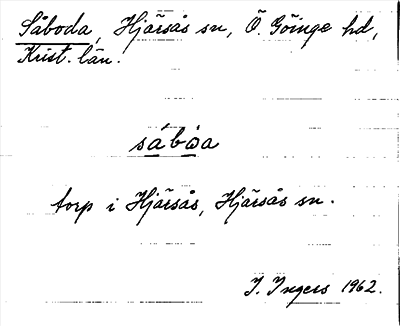 Såboda, Hjärsås sn, Ö. Göinge hd,
Krist. län.
såbåa
torp i Hjärsås, Hjärsås sn.
I. Ingers 1962.